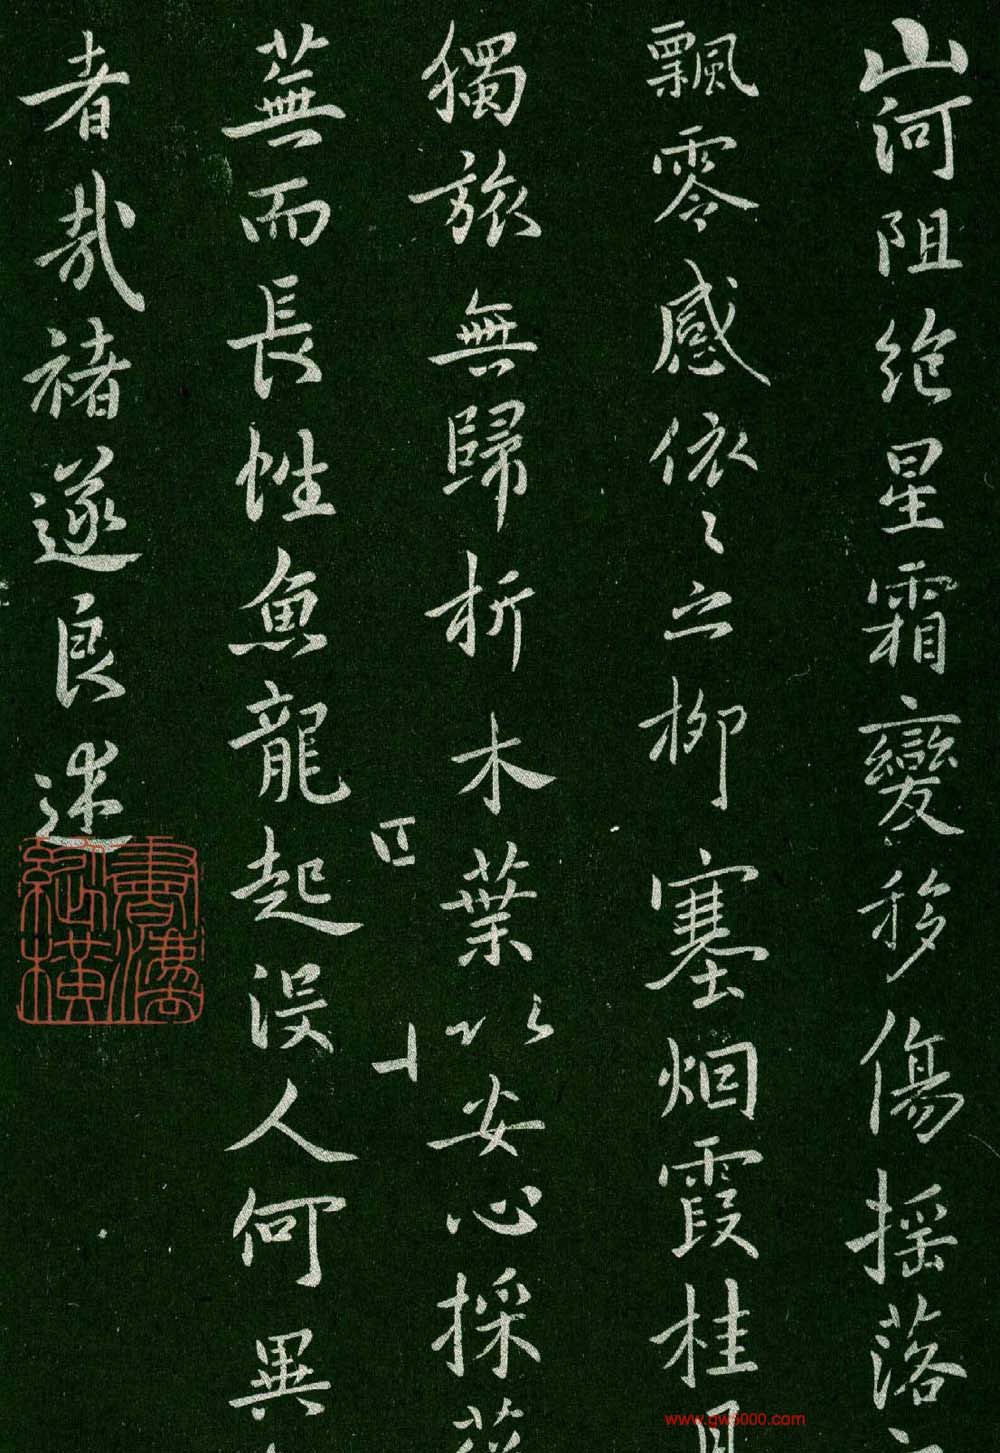 山河阻绝星霜變移傷摇落
飄零感依〻之柳塞烟霞桂月
獨旅無歸折木葉以安心採薇
蕪而長性魚龍起没人何異
者哉褚遂良述
四
十
書法縱橫
www.gw5000.com